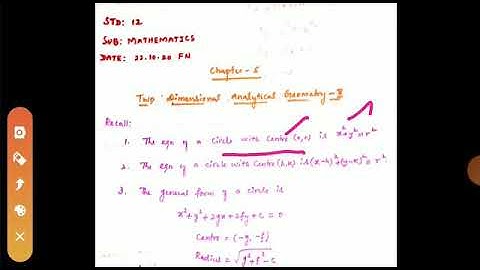 STD: 12
SUB: MATHEMATICS
DATE: 22.10.20 FN
Chapter - 5
Two Dimensional Analytical Geometry - II
Recall:
1. The eqn of a circle with Centre (0,0) is x²+y²=r²
2. The eqn of a circle with Centre (h,k) is (x-h)²+(y-k)²=r²
3. The general form of a circle is
x²+y²+2gx+2fy+c=0
Centre = (-g, -f)
Radius = √g²+f²-c